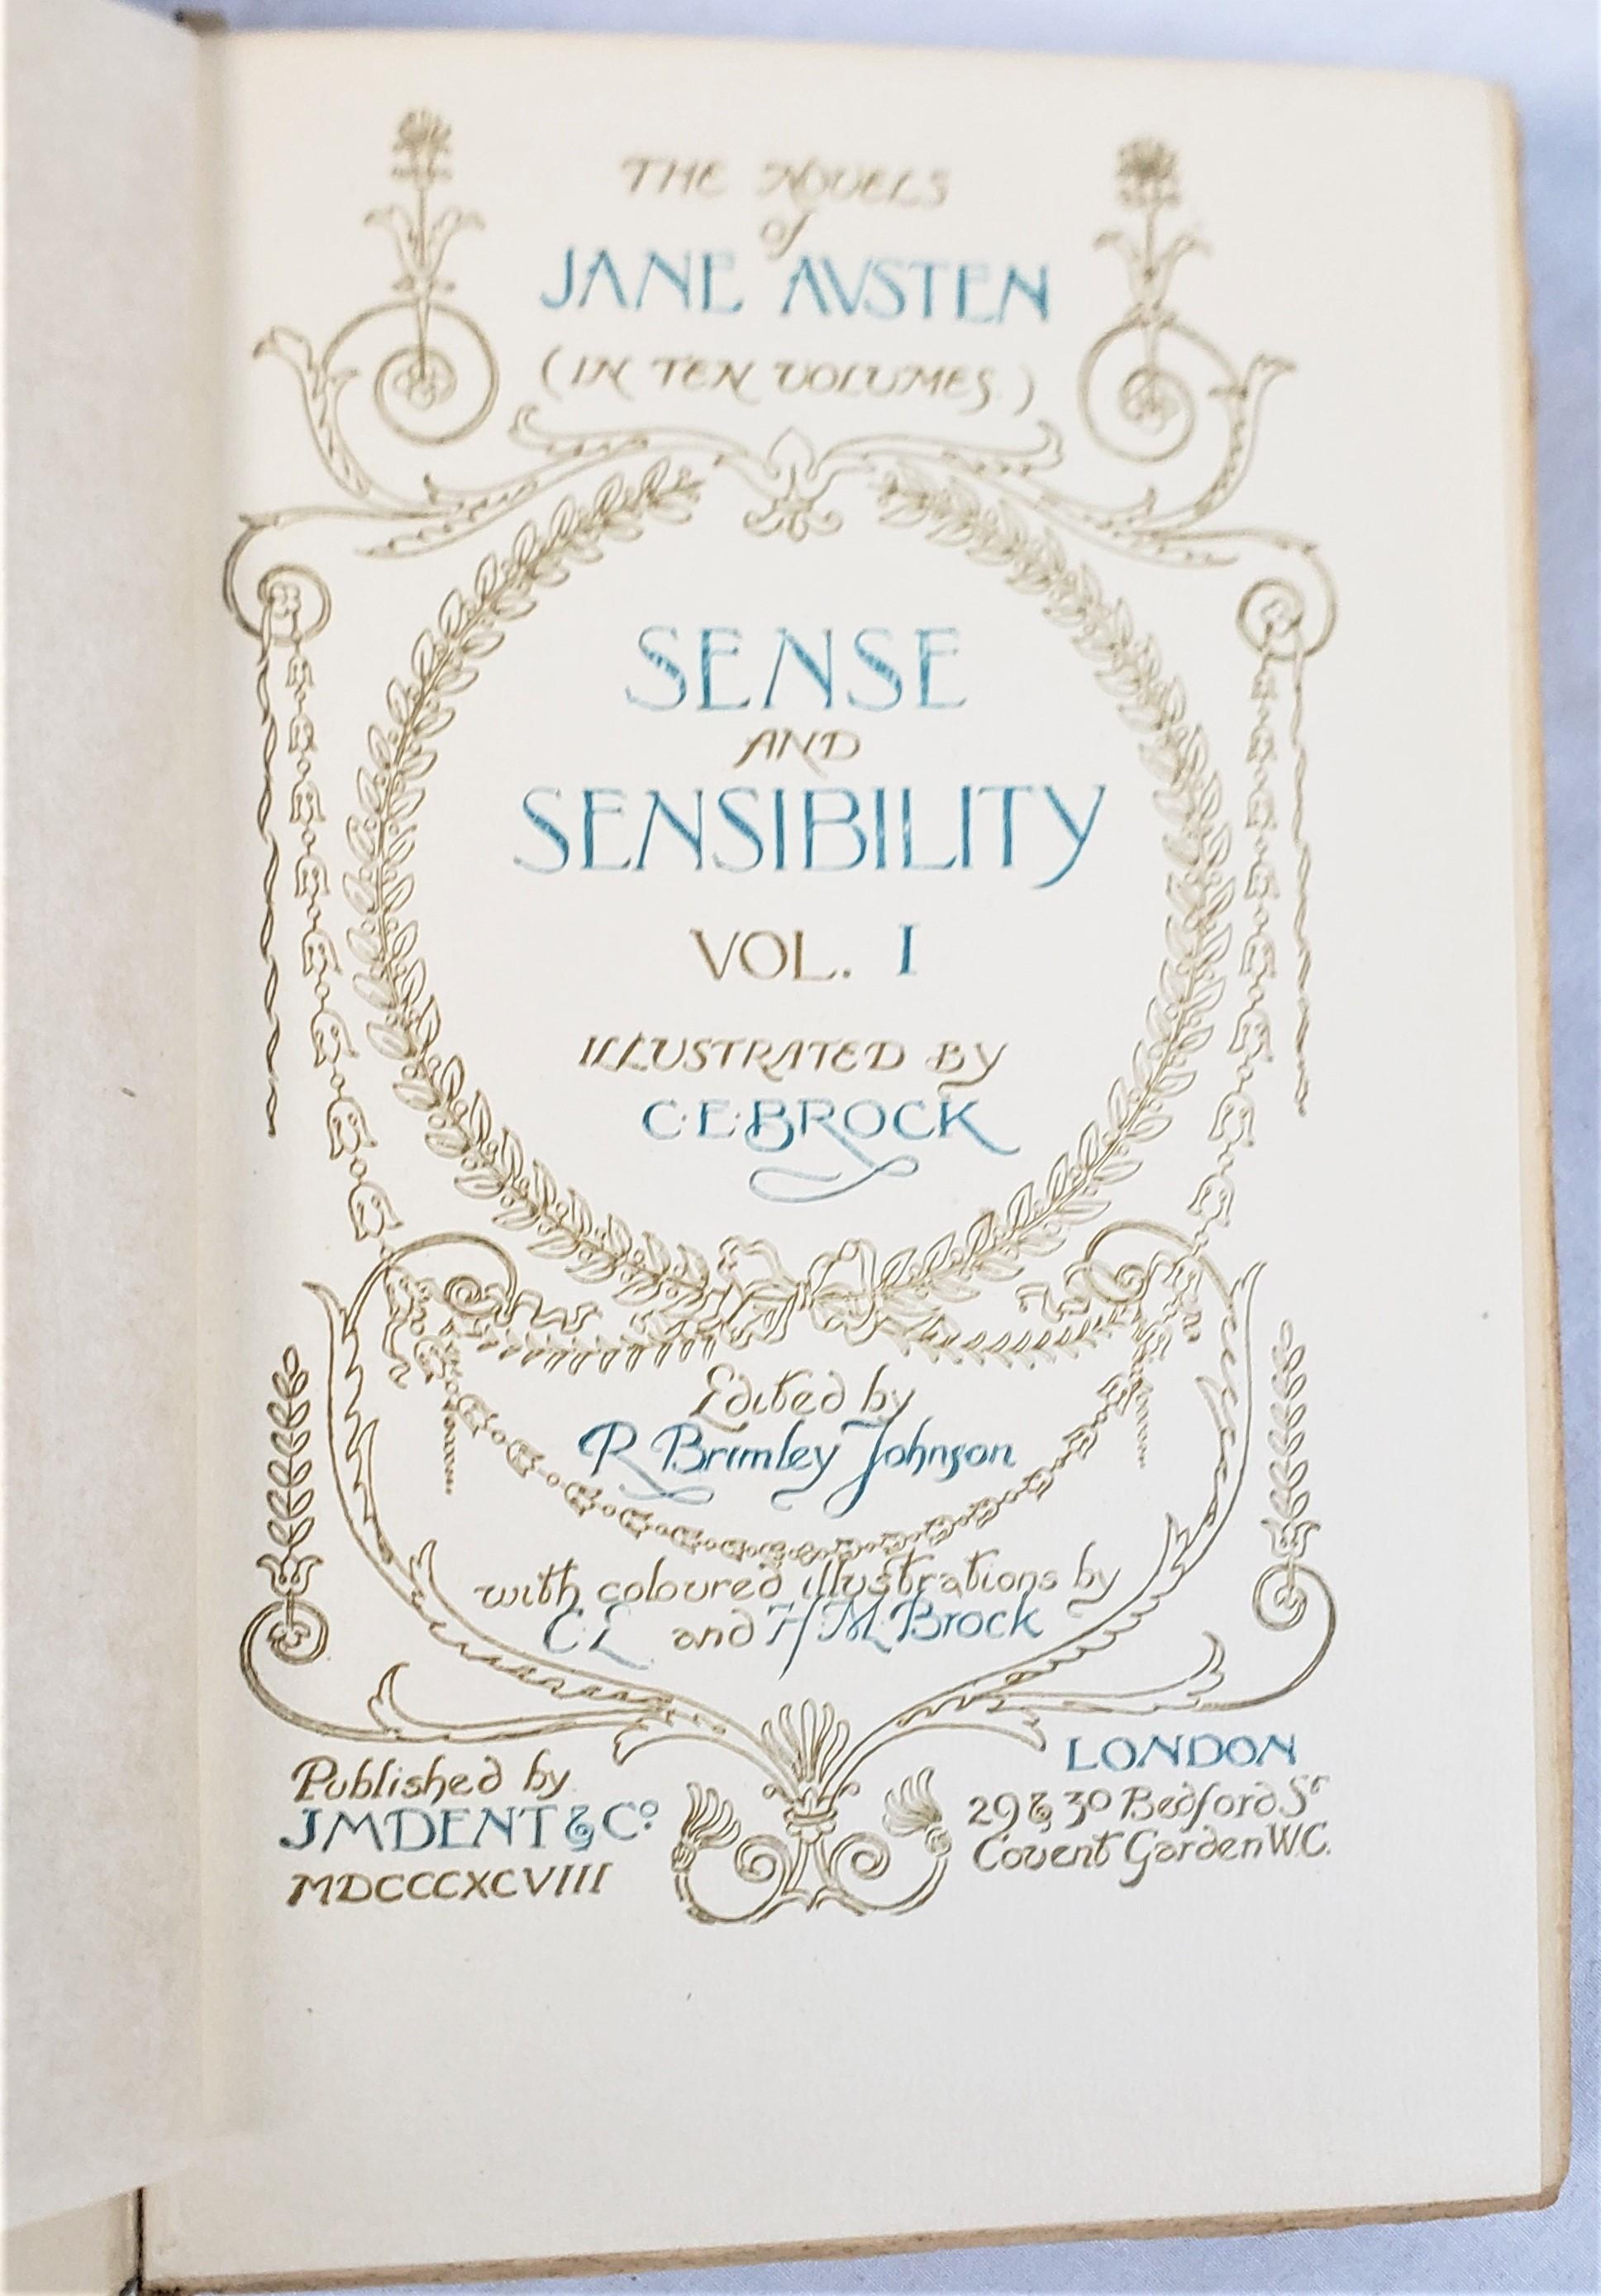 THE NOVELS
of
JANE AVSTEN
(IN TEN VOLUMES.)
SENSE
AND
SENSIBILITY
VOL. I
ILLUSTRATED BY
C·E·BROCK
Edited by
R Brimley Johnson
with coloured illustrations by
C·E. and H·M·Brock
Published by
JMDENT & Cº
MDCCCXCVIII
LONDON
29 & 30 Bedford Sᵗ
Covent Garden W.C.